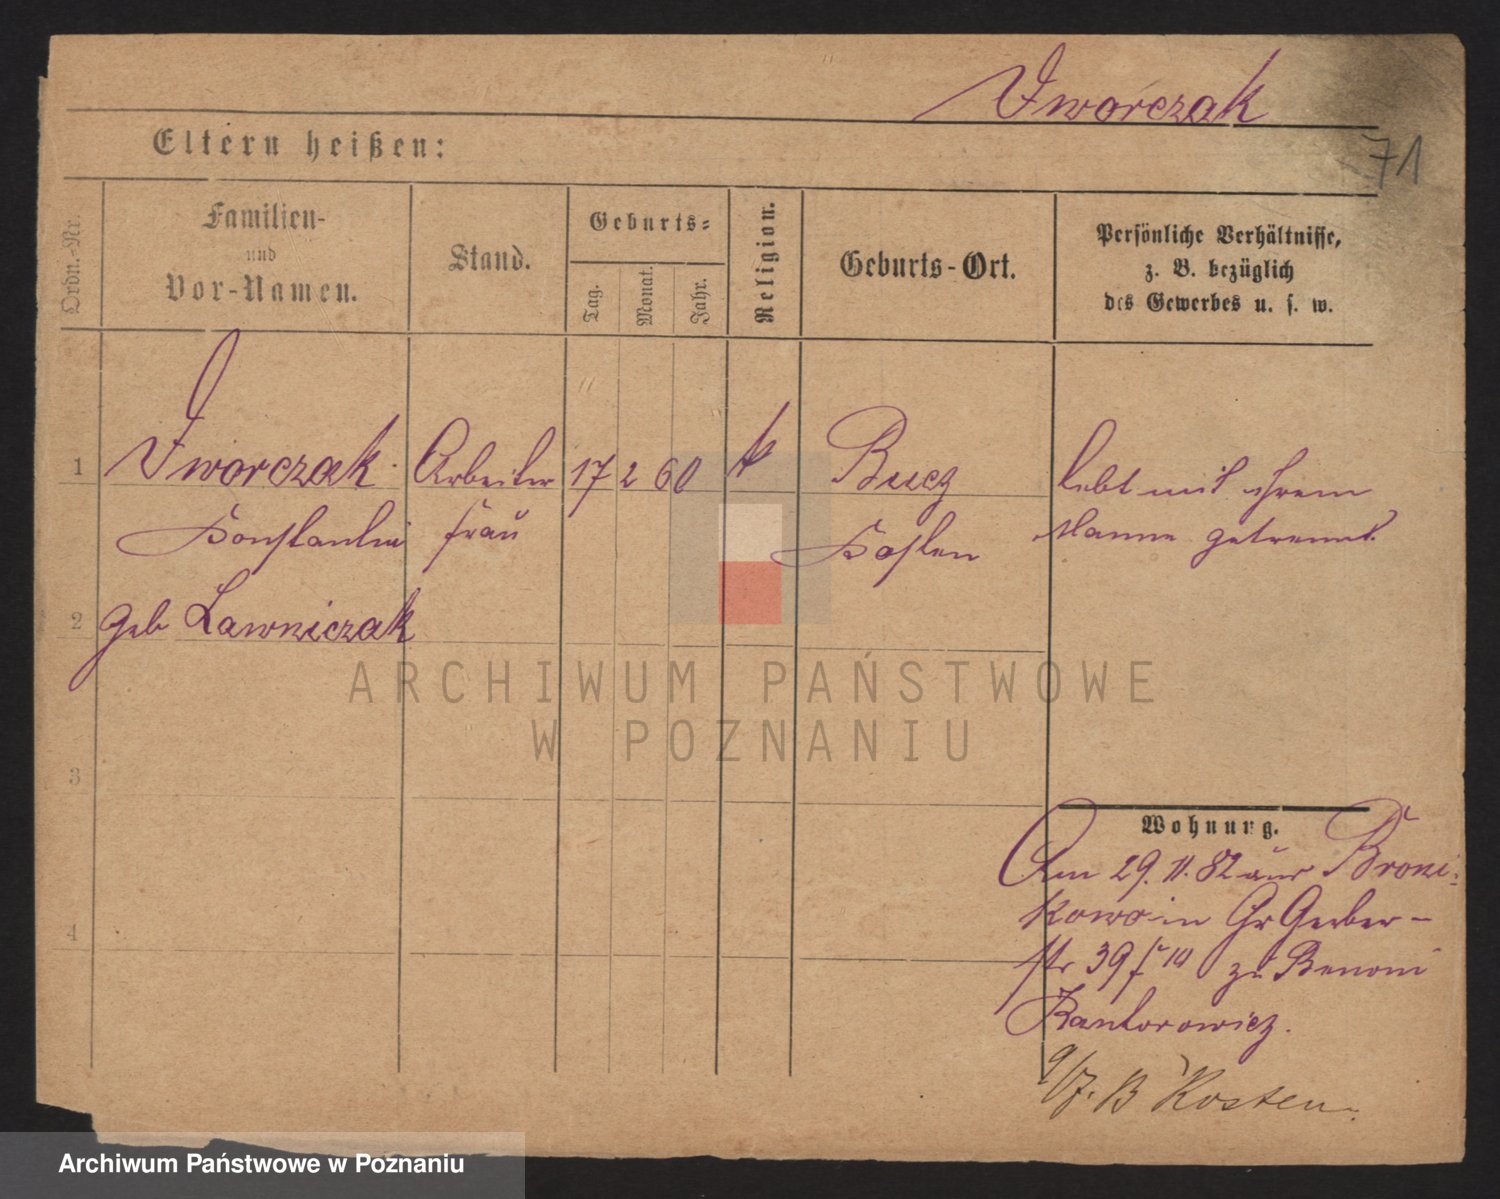 Dworczak
71
Eltern heißen:
Ordn.-Nr.
Familien-
und
Vor-Namen.
Stand.
Geburts-
Tag.
Monat.
Jahr.
Religion.
Geburts-Ort.
Persönliche Verhältnisse,
z. B. bezüglich
des Gewerbes u. s. w.
1 Dworczak Arbeiter 17 2 60 k Bucz lebt mit ihrem
Konstantia frau Kosten Manne getrennt.
2 geb Ławniczak
3
4
ARCHIWUM PAŃSTWOWE
W POZNANIU
Wohnung.
Am 29. 11. 82 aus Broni-
kowo in Gr Gerber-
str 39 zu Benoni
Kantorowicz.
B Kosten.
Archiwum Państwowe w Poznaniu